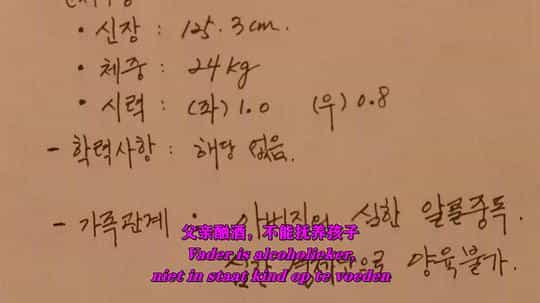 • 신장 : 125.3cm.
• 체중 : 24kg
• 시력 : (좌) 1.0 (우) 0.8
- 학력사항 : 해당 없음.
- 가족관계 : 아버지의 심한 알콜중독.
양육불가.
父亲酗酒，不能抚养孩子
Vader is alcoholieker,
niet in staat kind op te voeden